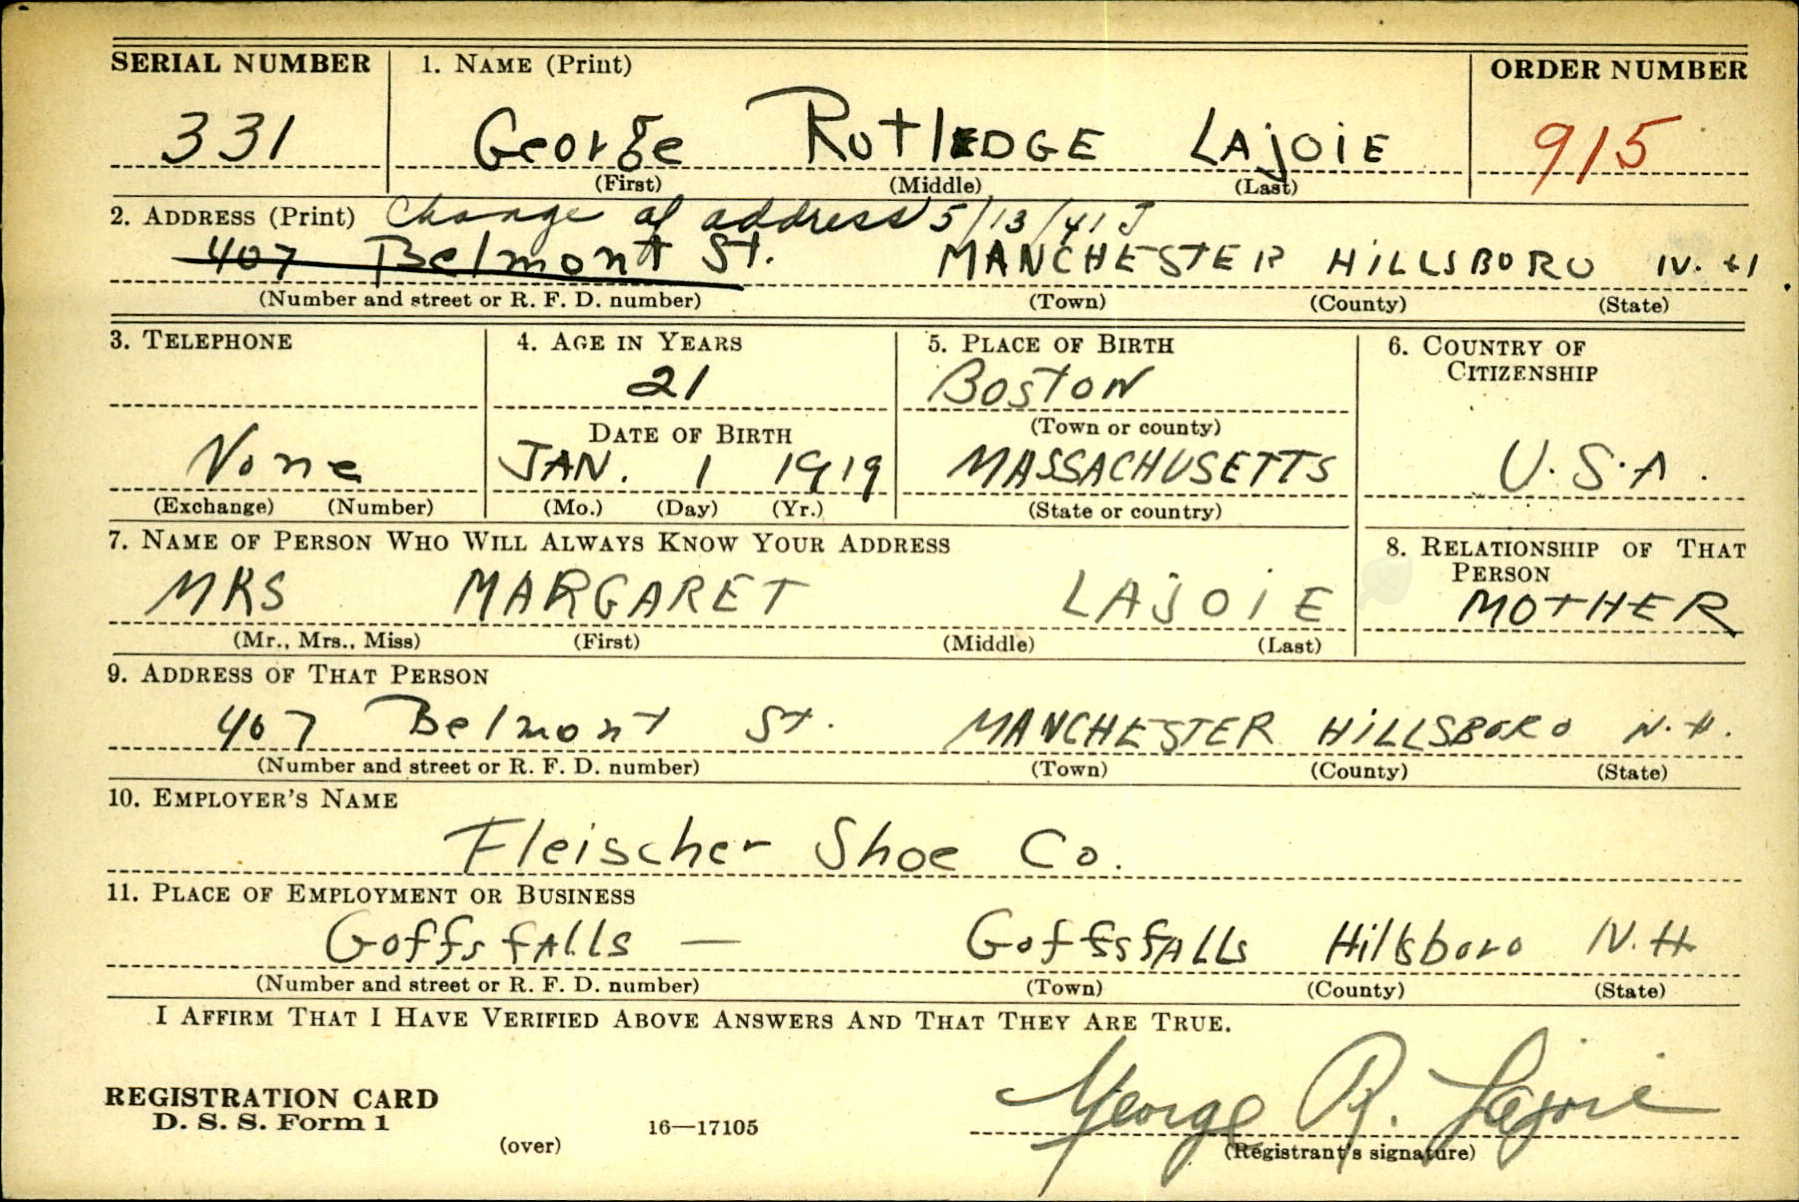 SERIAL NUMBER 1. NAME (Print) ORDER NUMBER
331 George RUTLEDGE LAJOIE 915
(First) (Middle) (Last)
2. ADDRESS (Print) Change of address 5/13/41 J
407 Belmont St. MANCHESTER HILLSBORO N. H
(Number and street or R. F. D. number) (Town) (County) (State)
3. TELEPHONE 4. AGE IN YEARS 5. PLACE OF BIRTH 6. COUNTRY OF
CITIZENSHIP
21 BOSTON
DATE OF BIRTH (Town or county)
None JAN. 1 1919 MASSACHUSETTS U.S.A.
(Exchange) (Number) (Mo.) (Day) (Yr.) (State or country)
7. NAME OF PERSON WHO WILL ALWAYS KNOW YOUR ADDRESS 8. RELATIONSHIP OF THAT
PERSON
MRS MARGARET LAJOIE MOTHER
(Mr., Mrs., Miss) (First) (Middle) (Last)
9. ADDRESS OF THAT PERSON
407 Belmont St. MANCHESTER HILLSBORO N.H.
(Number and street or R. F. D. number) (Town) (County) (State)
10. EMPLOYER'S NAME
Fleischer Shoe Co.
11. PLACE OF EMPLOYMENT OR BUSINESS
Goffs fAlls — Goffs fAlls Hillsboro N.H.
(Number and street or R. F. D. number) (Town) (County) (State)
I AFFIRM THAT I HAVE VERIFIED ABOVE ANSWERS AND THAT THEY ARE TRUE.
George R. Lajoie
REGISTRATION CARD
D. S. S. Form 1
(over) 16—17105 (Registrant's signature)